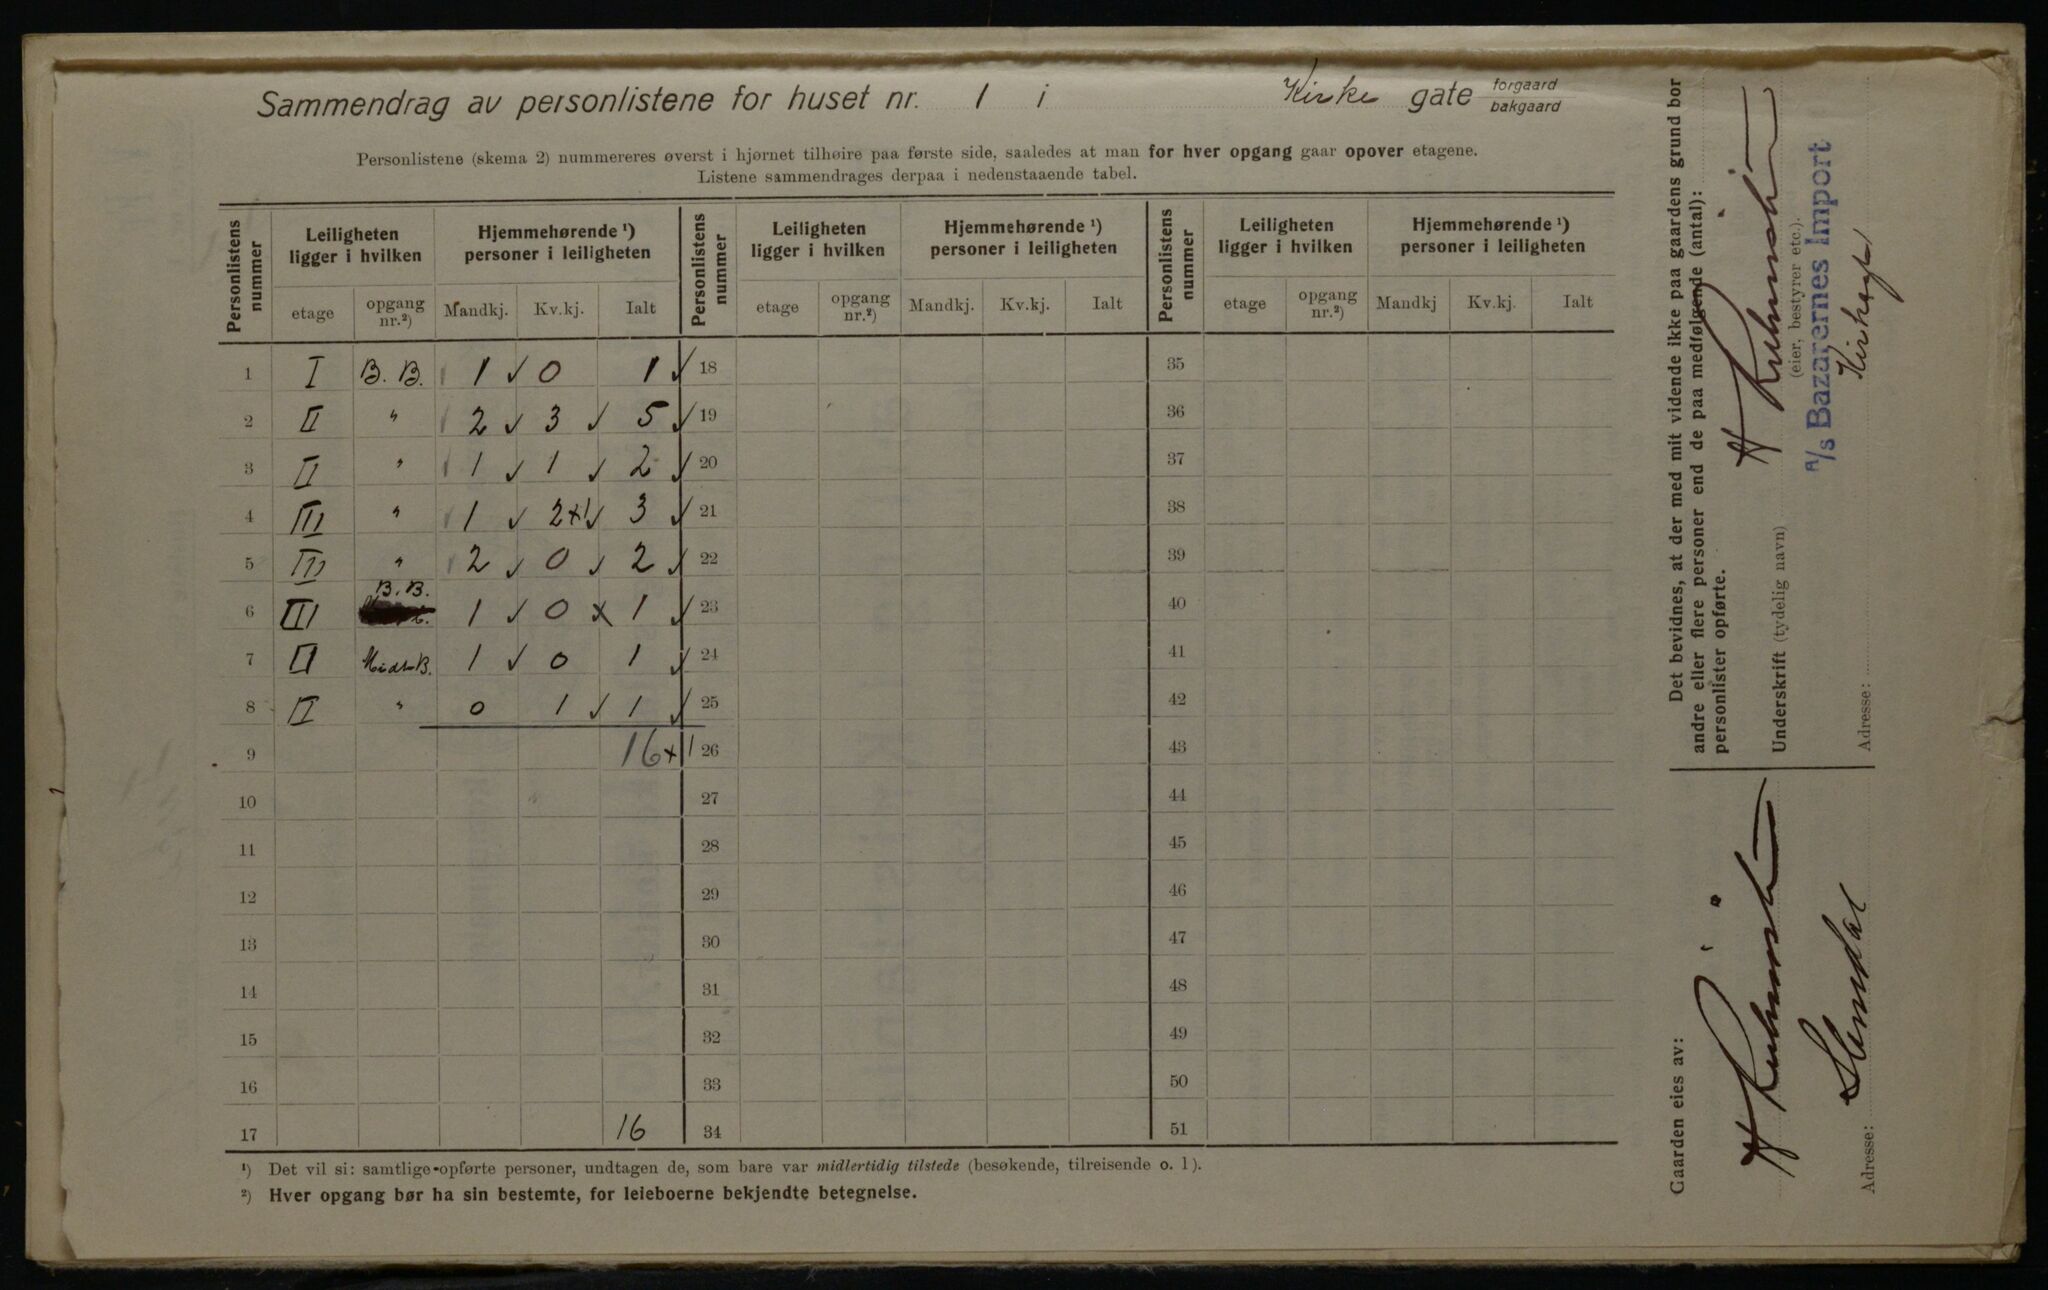 Sammendrag av personlistene for huset nr. 1 i Kirke gate forgaard
bakgaard
Personlistene (skema 2) nummereres øverst i hjørnet tilhøire paa første side, saaledes at man for hver opgang gaar opover etagene.
Listene sammendrages derpaa i nedenstaaende tabel.
Personlistens nummer
Leiligheten ligger i hvilken
Hjemmehørende ¹) personer i leiligheten
Personlistens nummer
Leiligheten ligger i hvilken
Hjemmehørende ¹) personer i leiligheten
Personlistens nummer
Leiligheten ligger i hvilken
Hjemmehørende ¹) personer i leiligheten
etage opgang nr.²) Mandkj. Kv.kj. Ialt etage opgang nr.²) Mandkj. Kv.kj. Ialt etage opgang nr.²) Mandkj Kv.kj. Ialt
1 I B. B. 1 0 1 18 35
2 II " 2 3 5 19 36
3 II " 1 1 2 20 37
4 III " 1 2+1 3 21 38
5 III " 2 0 2 22 39
6 III B. B. 1 0 x 1 23 40
7 II Midt-B. 1 0 1 24 41
8 II " 0 1 1 25 42
9 16+1 26 43
10 27 44
11 28 45
12 29 46
13 30 47
14 31 48
15 32 49
16 33 50
17 16 34 51
¹) Det vil si: samtlige opførte personer, undtagen de, som bare var midlertidig tilstede (besøkende, tilreisende o. l).
²) Hver opgang bør ha sin bestemte, for leieboerne bekjendte betegnelse.
Det bevidnes, at der med mit vidende ikke paa gaardens grund bor
andre eller flere personer end de paa medfølgende (antal):
personlister opførte.
Underskrift (tydelig navn)
(eier, bestyrer etc.).
A/S Bazarernes Import
Adresse: Kirkegt 1
Gaarden eies av:
Adresse: Slemdal